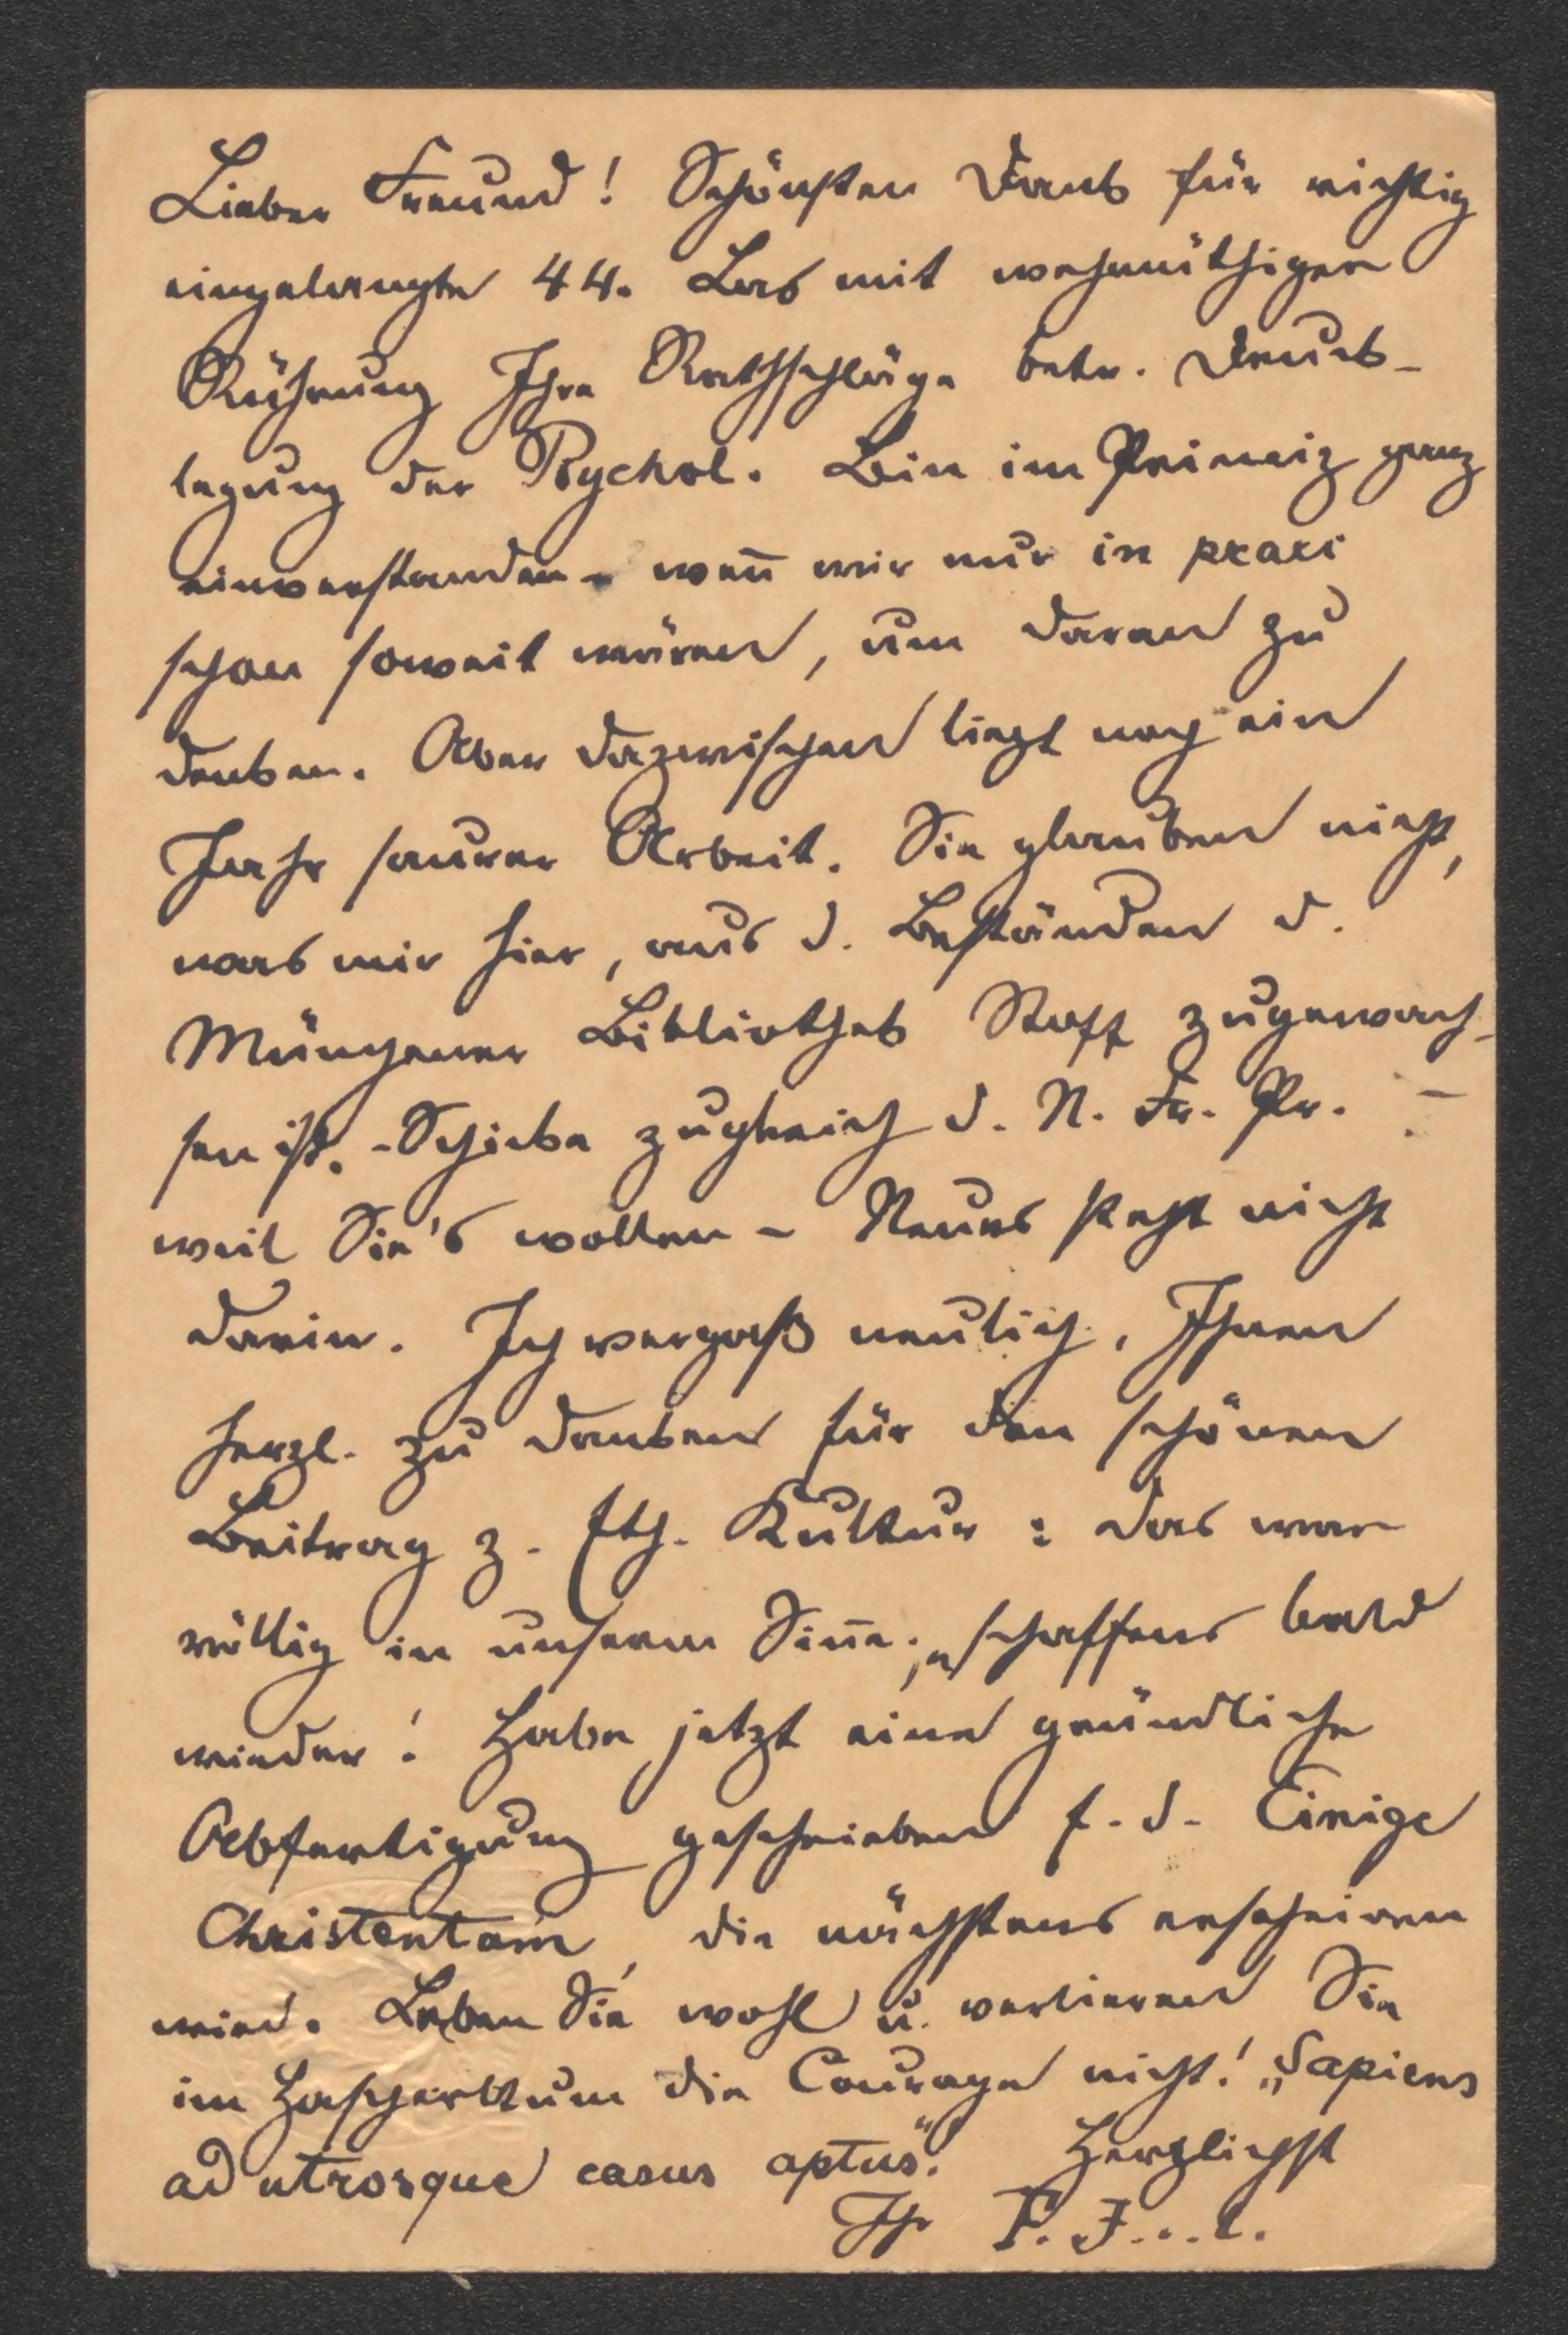 Lieber Freund! Schönsten Dank für richtig
eingelangte 44. Las mit wehmüthiger
Rührung Ihre Rathschläge betr. Druck-
legung der Psychol. Bin im Princip ganz
einverstanden – wen̅ wir nur in praxi
schon soweit wären, um daran zu
denken. Aber dazwischen liegt noch ein
Jahr saurer Arbeit. Sie glauben nicht,
was mir hier, aus d. Beständen d.
Münchener Bibliothek Stoff zugewach-
sen ist. – Schicke zugleich d. N. Fr. Pr. –
weil Sie's wollen – Neues steht nicht
darin. Ich vergaß neulich, Ihnen
herzl. zu danken für den schönen
Beitrag z. Eth. Kultur: das war
völlig in unserm Sin̅e; schaffens bald
wieder! Habe jetzt eine gründliche
Abfertigung geschrieben f. d. Einige
Christentum, die nächstens erscheinen
wird. Leben Sie wohl u. verlieren Sie
im die Courage nicht! „Sapiens
ad utrosque casus aptus“. Herzlichst
Ihr F. J...l.